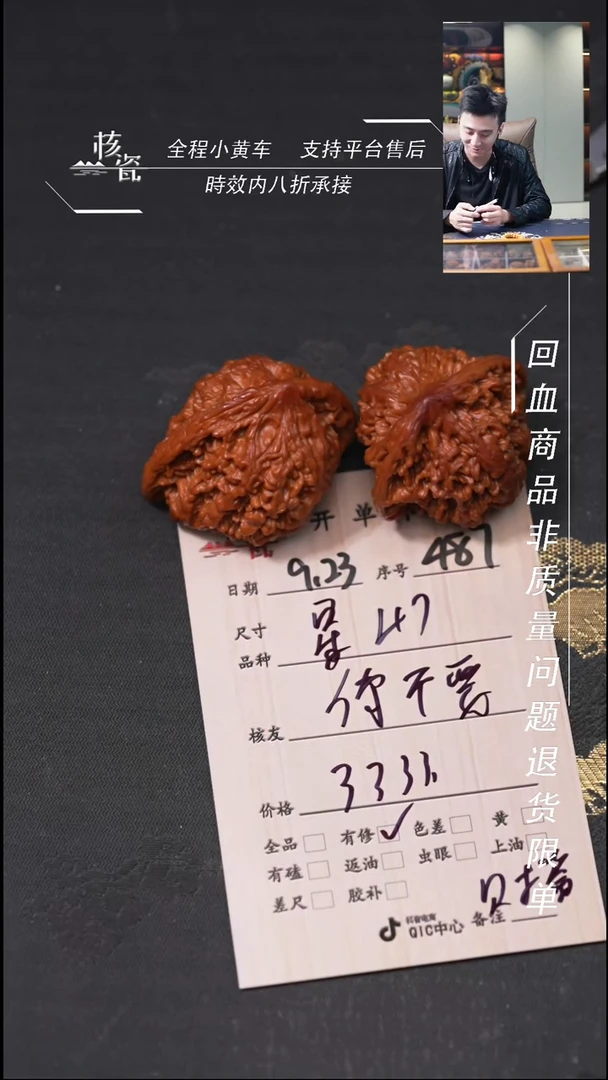 核瓷
全程小黄车 支持平台售后
時效内八折承接
回血商品非质量问题退货限单
开单
日期 9.23 序号 487
尺寸
品种 星 47
核友 你不要
价格
全品 有修 ✓ 色差 黄
有磕 返油 虫眼 上油
差尺 胶补
抖音电商
QIC中心 备注